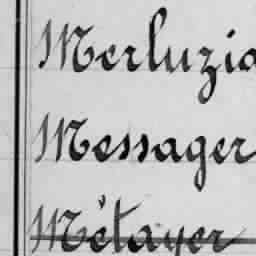 Merluzio
Messager
Métayer